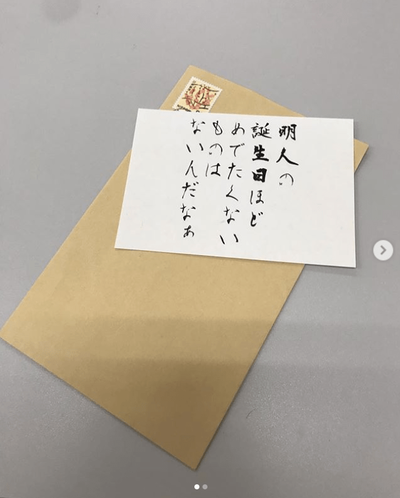 明人の
誕生日ほど
めでたくない
ものは
ないんだなぁ